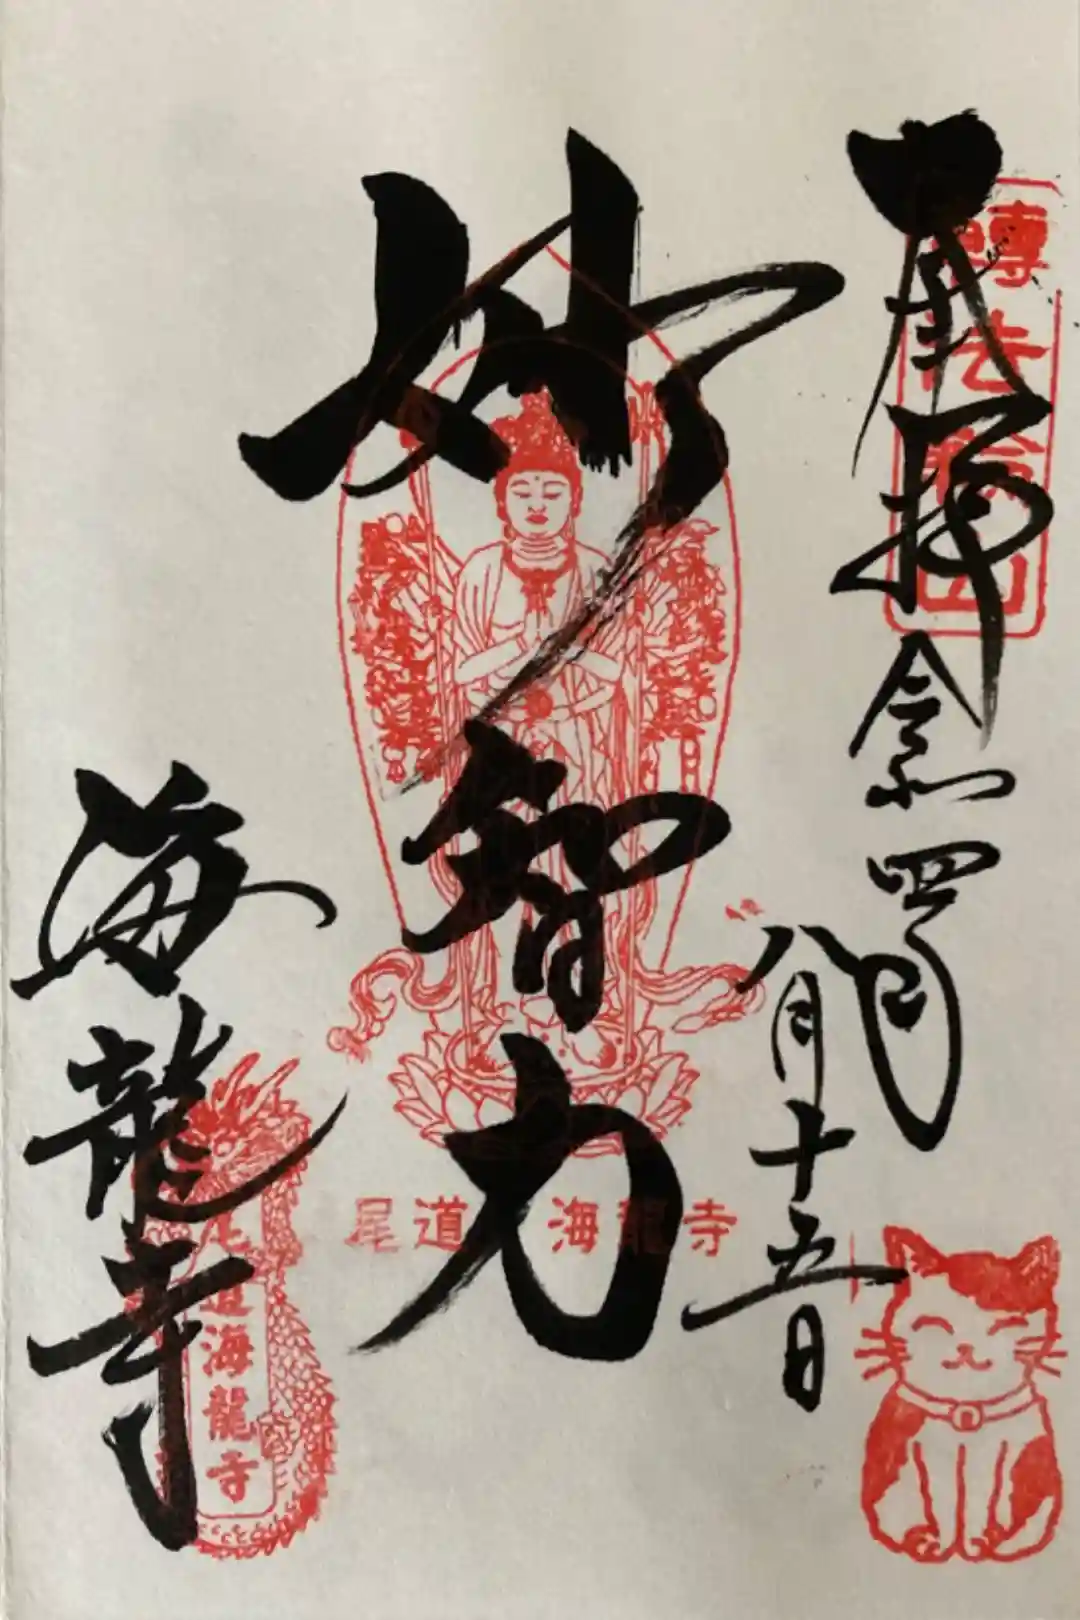 奉拝
令和四年
八月十五日
妙智力
海龍寺
轉法輪山
尾道 海龍寺
尾道海龍寺